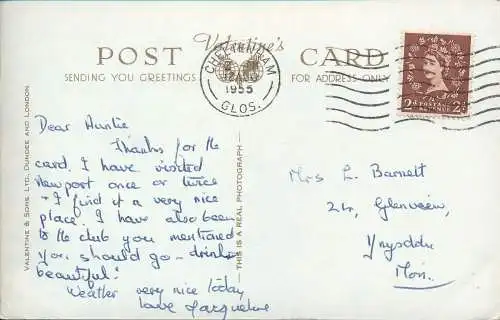 Valentine's
POST CARD
SENDING YOU GREETINGS
FOR ADDRESS ONLY
CHELTENHAM
1955
GLOS.
2D POSTAGE REVENUE 2D
VALENTINE & SONS, LTD., DUNDEE AND LONDON
THIS IS A REAL PHOTOGRAPH
Dear Auntie
Thanks for the
card. I have visited
Newport once or twice
- I find it a very nice
place. I have also been
to the club you mentioned
you should go - drinks
beautiful!
Weather very nice today
Love Jacqueline
Mrs L. Barnett
24, Glenview,
Ynysddu
Mon.